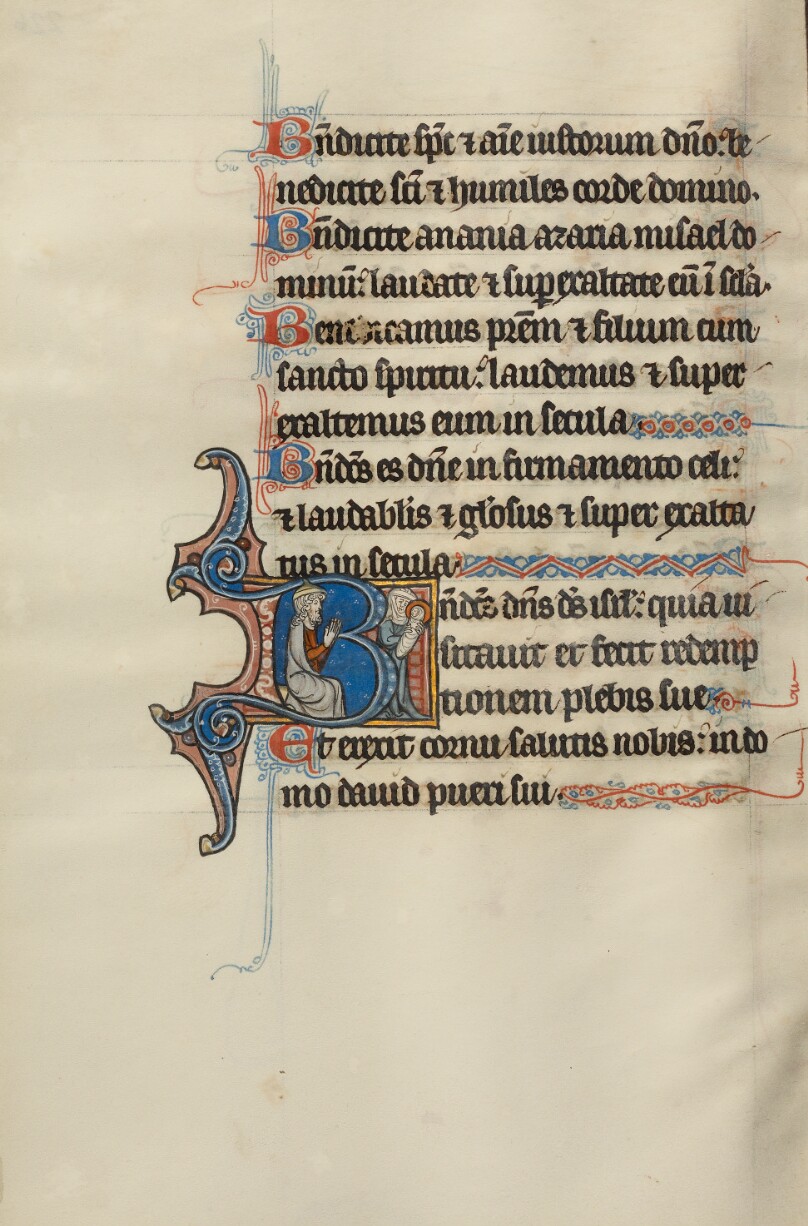 Bn̄dicite sp̄c ⁊ aīe iustorum dn̄o: be
nedicite sc̄i ⁊ humiles corde domino.
Bn̄dicite anania azaria misael do
minū: laudate ⁊ suꝑexaltate eū ī scl̄a.
Benedicamus pr̄em ⁊ filium cum
sancto spiritu: laudemus ⁊ super
exaltemus eum in secula.
Bn̄dc̄s es dn̄e in firmamento celi:
⁊ laudabl̄is ⁊ gl̄osus ⁊ super exalta
tus in secula.
Bn̄dc̄s dn̄s ds̄ isrl̄: quia ui
sitauit et fecit redemp
tionem plebis sue.
Et erexit cornu salutis nobis: in do
mo dauid pueri sui.